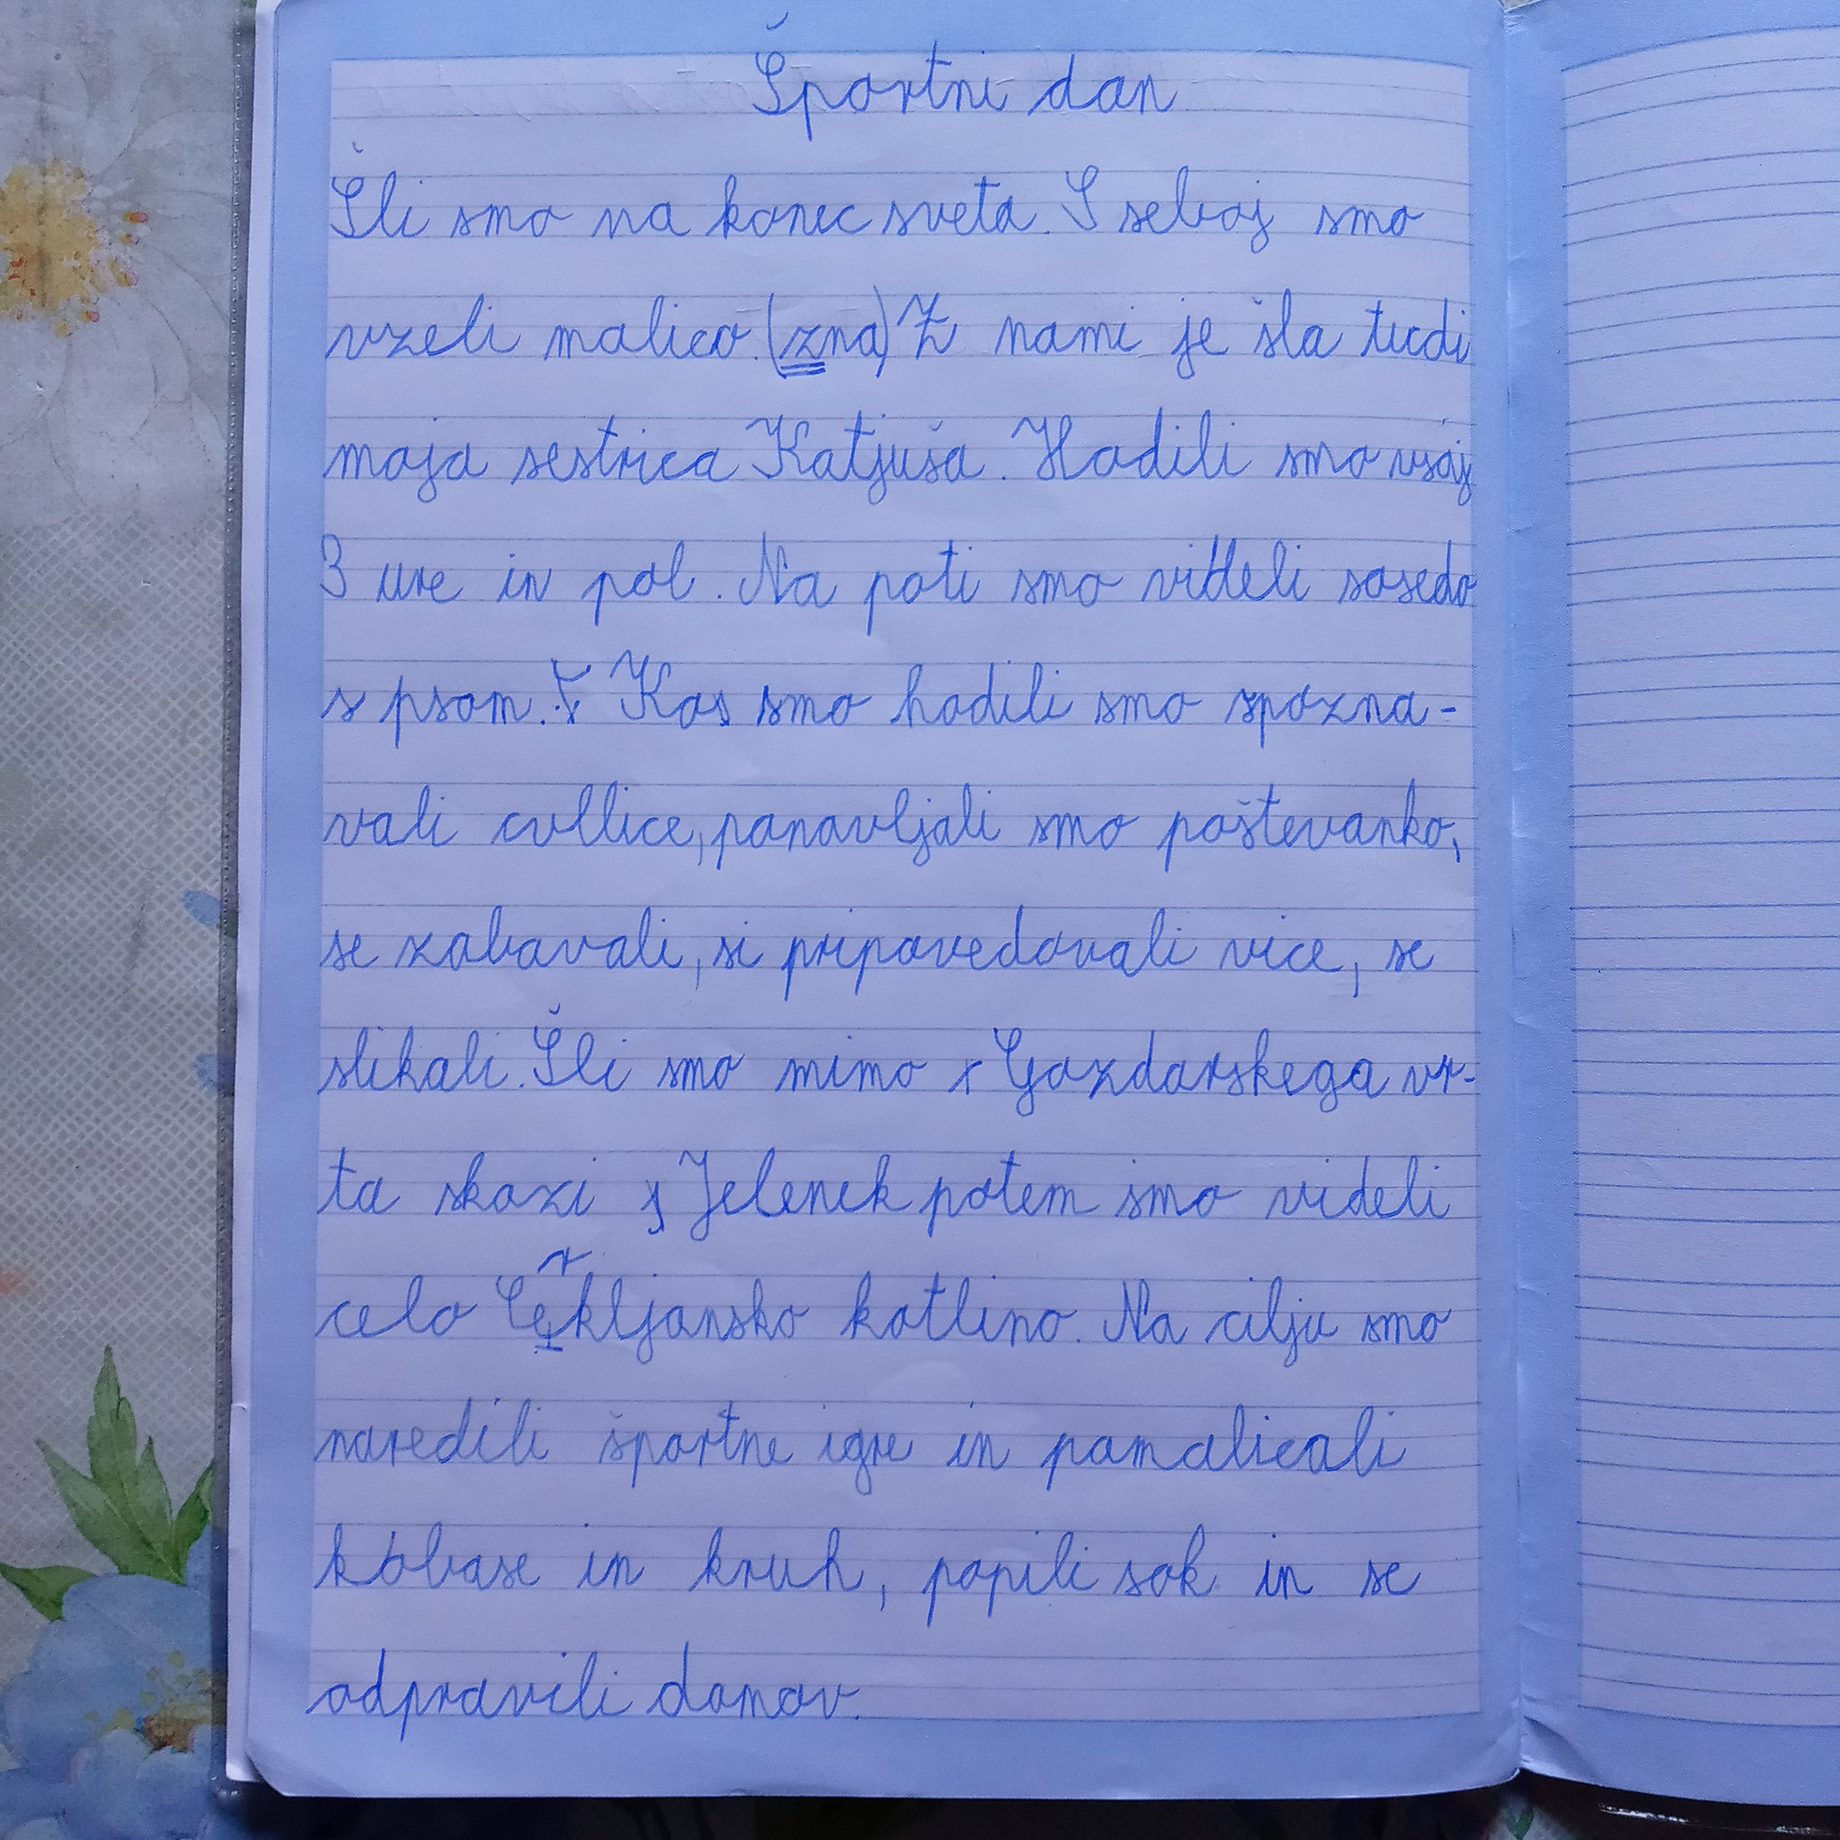 Športni dan
Šli smo na konec sveta. S seboj smo
vzeli malico. (zna) Z nami je šla tudi
moja sestrica Katjuša. Hodili smo vsaj
3 ure in pol. Na poti smo videli sosedo
s psom. Kos smo hodili smo spozna-
vali cvllice, ponavljali smo poštevanko,
se zabavali, si pripovedovali vice, se
slikali. Šli smo mimo Gozdarskega vr-
ta skozi Jelenek potem smo videli
celo Cerkljansko kotlino. Na cilju smo
naredili športne igre in pomalicali
klobase in kruh, popili sok in se
odpravili domov.